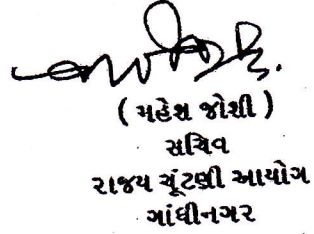 ( મહેશ જોશી )
સચિવ
રાજય ચૂંટણી આયોગ
ગાંધીનગર